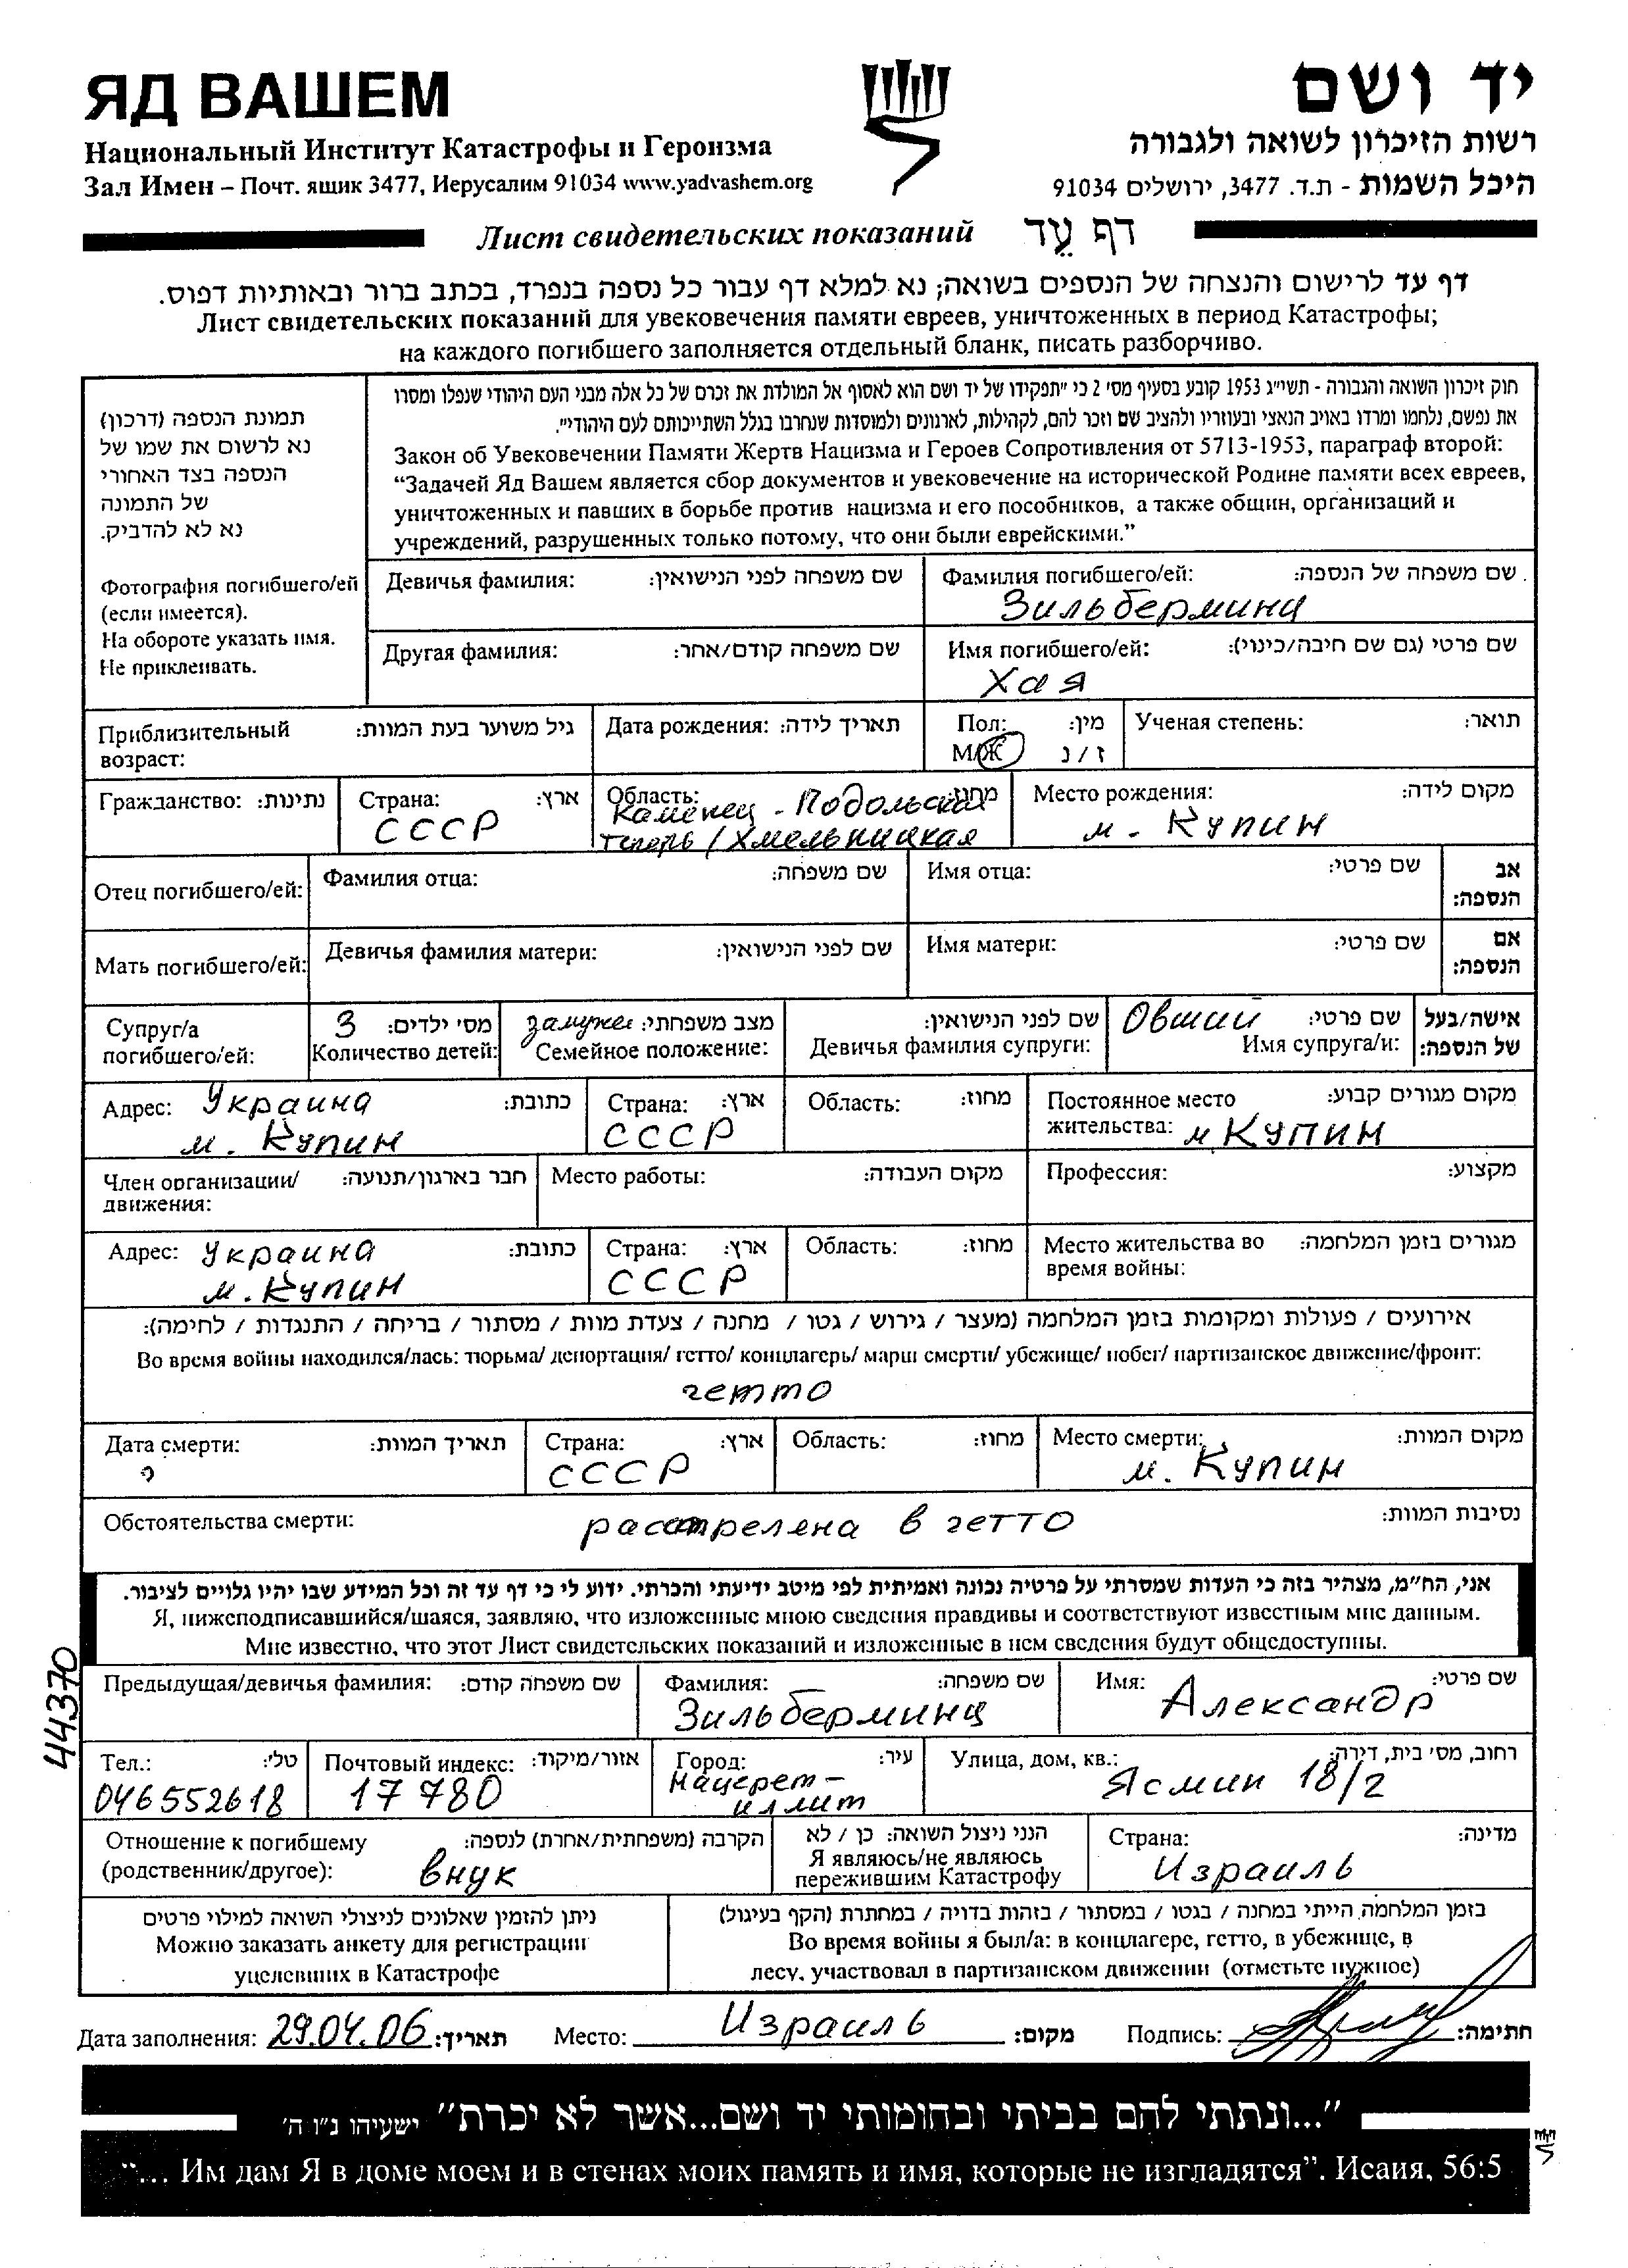 ЯД ВАШЕМ
יד ושם
Национальный Институт Катастрофы и Героизма
רשות הזיכרון לשואה ולגבורה
Зал Имен – Почт. ящик 3477, Иерусалим 91034 www.yadvashem.org
היכל השמות - ת.ד. 3477, ירושלים 91034
Лист свидетельских показаний דף עֵד
דף עד לרישום והנצחה של הנספים בשואה; נא למלא דף עבור כל נספה בנפרד, בכתב ברור ובאותיות דפוס.
Лист свидетельских показаний для увековечения памяти евреев, уничтоженных в период Катастрофы;
на каждого погибшего заполняется отдельный бланк, писать разборчиво.
תמונת הנספה (דרכון)
נא לרשום את שמו של
הנספה בצד האחורי
של התמונה
נא לא להדביק.
Фотография погибшего/ей
(если имеется).
На обороте указать имя.
Не приклеивать.
חוק זיכרון השואה והגבורה - תשי״ג 1953 קובע בסעיף מס׳ 2 כי ״תפקידו של יד ושם הוא לאסוף אל המולדת את זכרם של כל אלה מבני העם היהודי שנפלו ומסרו
את נפשם, נלחמו ומרדו באויב הנאצי ובעוזריו ולהציב שם וזכר להם, לקהילות, לארגונים ולמוסדות שנחרבו בגלל השתייכותם לעם היהודי״.
Закон об Увековечении Памяти Жертв Нацизма и Героев Сопротивления от 5713-1953, параграф второй:
“Задачей Яд Вашем является сбор документов и увековечение на исторической Родине памяти всех евреев,
уничтоженных и павших в борьбе против нацизма и его пособников, а также общин, организаций и
учреждений, разрушенных только потому, что они были еврейскими.”
Девичья фамилия: שם משפחה לפני הנישואין:
Фамилия погибшего/ей: שם משפחה של הנספה:
Зильберминц
Другая фамилия: שם משפחה קודם/אחר:
Имя погибшего/ей: שם פרטי (גם שם חיבה/כינוי):
Хая
Приблизительный גיל משוער בעת המוות:
возраст:
Дата рождения: תאריך לידה:
Пол: מין:
М/Ж ז / נ
Ученая степень: תואר:
Гражданство: נתינות:
Страна: ארץ:
СССР
Область: מחוז:
Каменец - Подольская
теперь / Хмельницкая
Место рождения: מקום לידה:
м. Купин
Отец погибшего/ей: Фамилия отца: שם משפחה: Имя отца: שם פרטי: אב
הנספה:
Мать погибшего/ей: Девичья фамилия матери: שם לפני הנישואין: Имя матери: שם פרטי: אם
הנספה:
Супруг/а
погибшего/ей:
3 מס׳ ילדים:
Количество детей:
замужем מצב משפחתי:
Семейное положение:
שם לפני הנישואין:
Девичья фамилия супруги:
Овший שם פרטי:
Имя супруга/и:
אישה/בעל
של הנספה:
Адрес: Украина כתובת:
м. Купин
Страна: ארץ:
СССР
Область: מחוז:
Постоянное место מקום מגורים קבוע:
жительства: м Купин
Член организации/ חבר בארגון/תנועה:
движения:
Место работы: מקום העבודה:
Профессия: מקצוע:
Адрес: Украина כתובת:
м. Купин
Страна: ארץ:
СССР
Область: מחוז:
Место жительства во מגורים בזמן המלחמה:
время войны:
אירועים / פעולות ומקומות בזמן המלחמה (מעצר / גירוש / גטו / מחנה / צעדת מוות / מסתור / בריחה / התנגדות / לחימה):
Во время войны находился/лась: тюрьма/ депортация/ гетто/ концлагерь/ марш смерти/ убежище/ побег/ партизанское движение/фронт:
гетто
Дата смерти: תאריך המוות:
?
Страна: ארץ:
СССР
Область: מחוז:
Место смерти: מקום המוות:
м. Купин
Обстоятельства смерти: расстреляна в гетто נסיבות המוות:
אני, הח״מ, מצהיר בזה כי העדות שמסרתי על פרטיה נכונה ואמיתית לפי מיטב ידיעתי והכרתי. ידוע לי כי דף עד זה וכל המידע שבו יהיו גלויים לציבור.
Я, нижеподписавшийся/шаяся, заявляю, что изложенные мною сведения правдивы и соответствуют известным мне данным.
Мне известно, что этот Лист свидетельских показаний и изложенные в нем сведения будут общедоступны.
44370
Предыдущая/девичья фамилия: שם משפחה קודם:
Фамилия: שם משפחה:
Зильберминц
Имя: שם פרטי:
Александр
Тел.: טל׳:
046552618
Почтовый индекс: אזור/מיקוד:
17780
Город: עיר:
Нацерет-
иллит
Улица, дом, кв.: רחוב, מס׳ בית, דירה:
Ясмин 18/2
Отношение к погибшему הקרבה (משפחתית/אחרת) לנספה:
(родственник/другое): внук
הנני ניצול השואה: כן / לא
Я являюсь/не являюсь
пережившим Катастрофу
Страна: מדינה:
Израиль
ניתן להזמין שאלונים לניצולי השואה למילוי פרטים
Можно заказать анкету для регистрации
уцелевших в Катастрофе
בזמן המלחמה הייתי במחנה / בגטו / במסתור / בזהות בדויה / במחתרת (הקף בעיגול)
Во время войны я был/а: в концлагере, гетто, в убежище, в
лесу, участвовал в партизанском движении (отметьте нужное)
Дата заполнения: 29.04.06 תאריך: Место: Израиль מקום: Подпись: חתימה:
״...ונתתי להם בביתי ובחומותי יד ושם...אשר לא יכרת״ ישעיהו נ״ו ה׳
“... Им дам Я в доме моем и в стенах моих память и имя, которые не изгладятся”. Исаия, 56:5